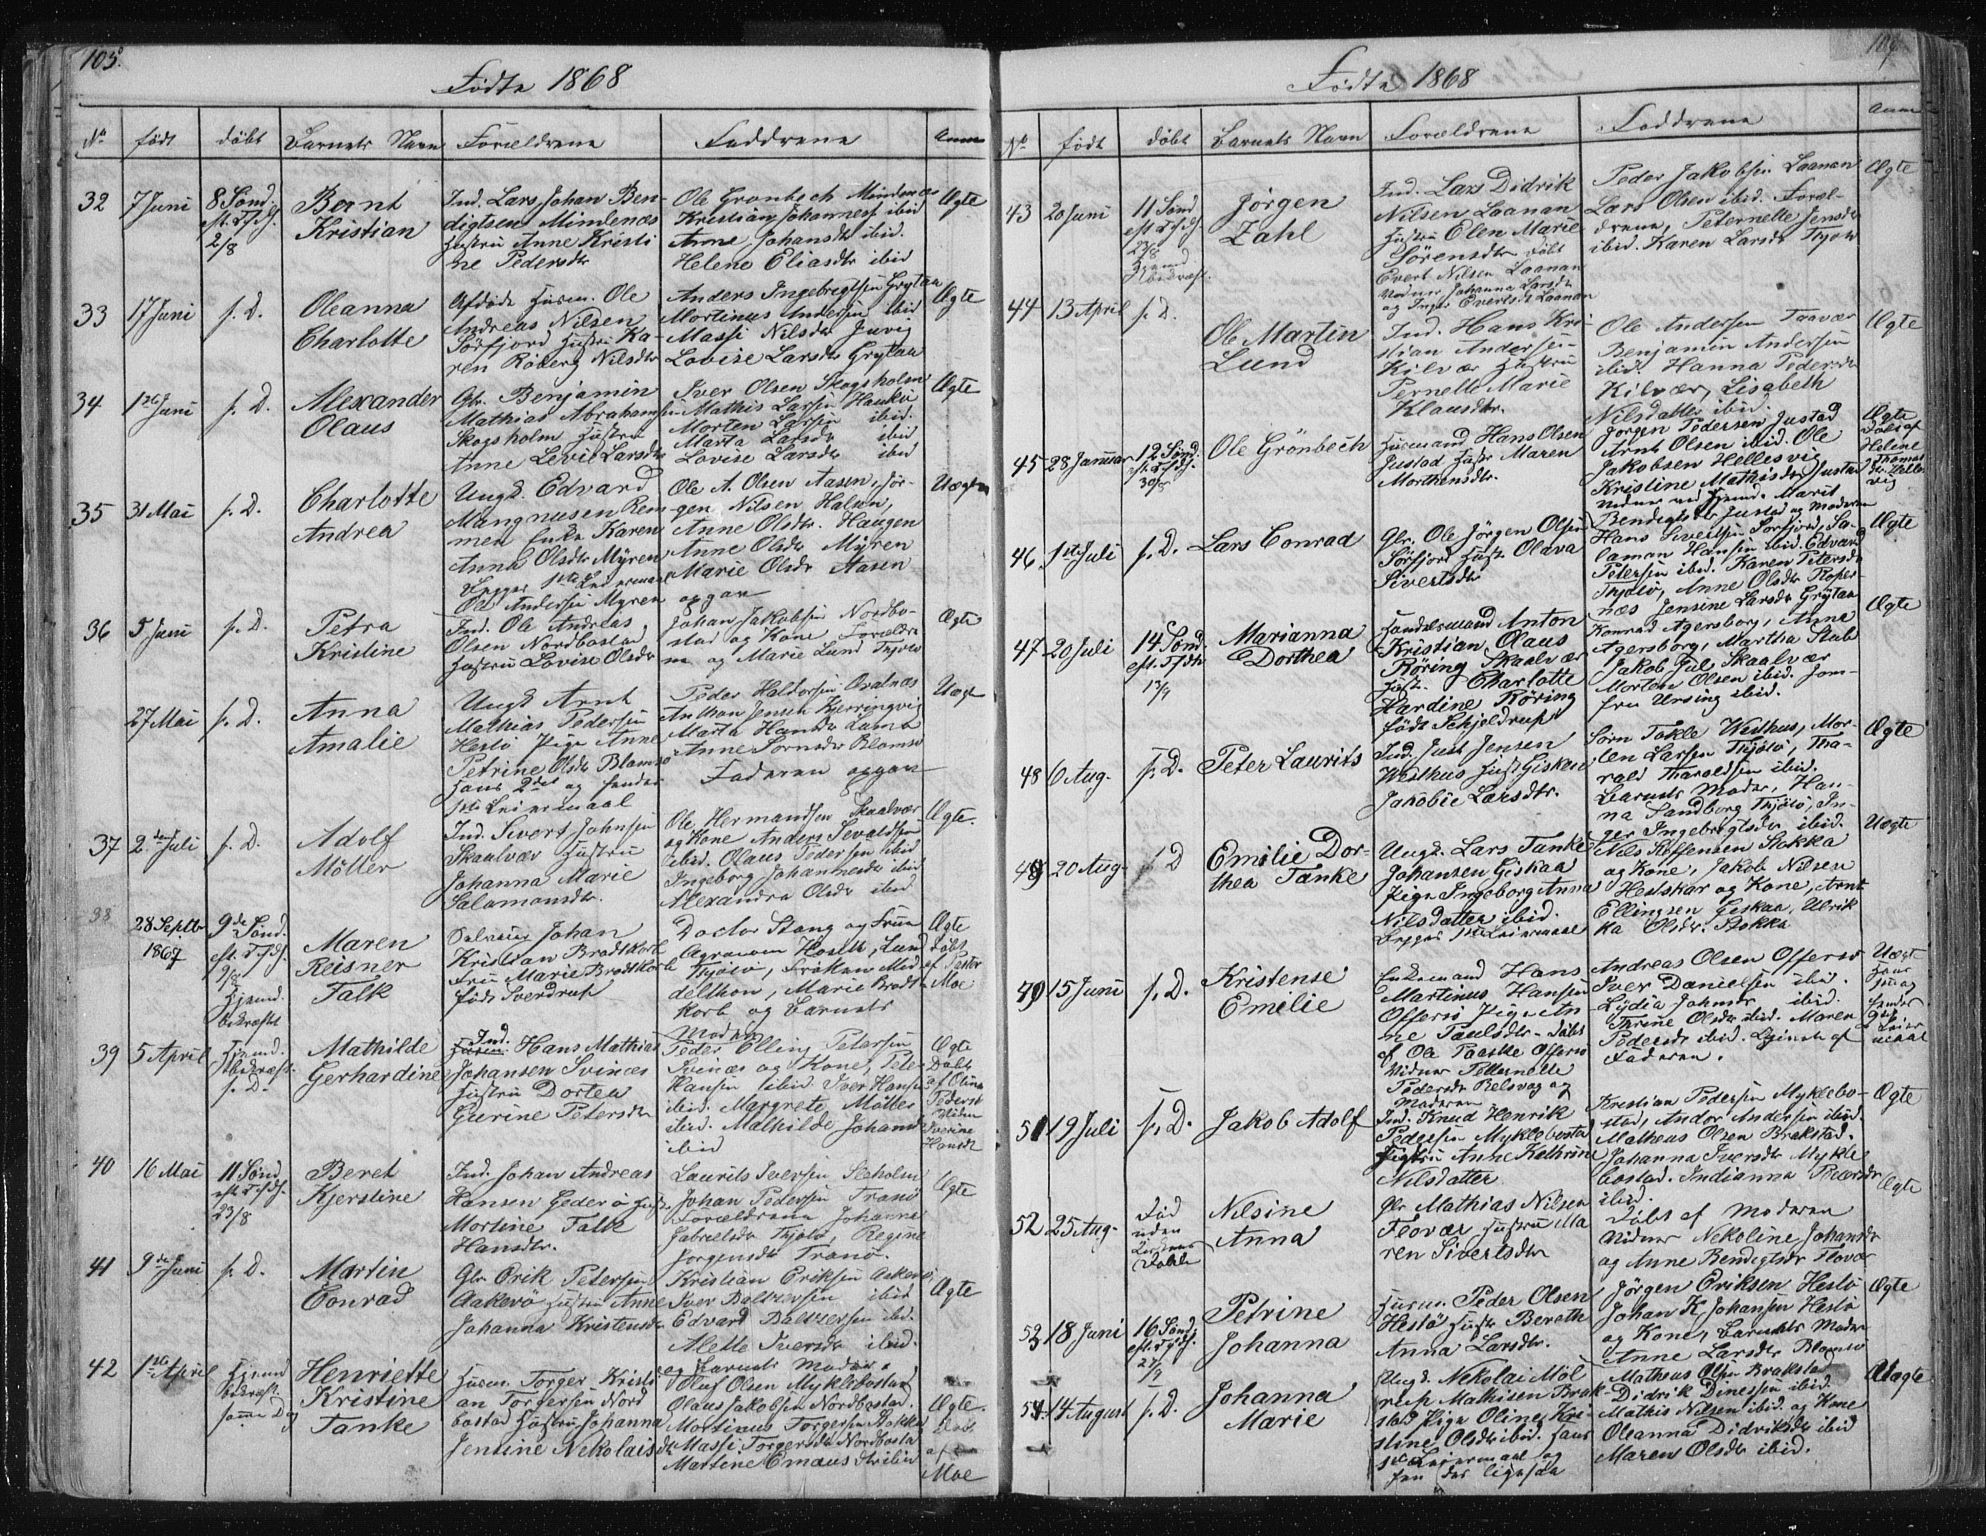 103.
Fødte 1868
No født døbt Barnets Navn Forældrene Faddrene Anm
32 7 Juni 8 Sönd. eft. Tfdg. 2/8
Bernt
Kristian
Ind. Lars Johan Ben-
digtsen Mindenæs
Hustru Anne Kristi
ne Pedersdtr
Ole Grønbech Mindenæs
Kristian Johannesf ibid
Anne Johansdtr ibid.
Helene Eliasdtr ibid
Ægte
33 17 Juni s. D.
Oleanna
Charlotte
Afdøde Husm. Ole
Andreas Nilsen
Sörfjord Hustru Ka-
ren Roberg Nilsdtr
Anders Ingebregtsen Grytaa
Mortinus Andersen ibid
Massi Nilsdtr Juvig
Lovise Larsdtr Grytaa
Ægte
34 1ste Juni s. D.
Alexander
Olaus
Gbr. Benjamin
Mathias Abrahamsen
Skogsholm Hustru
Anne Levie Larsdtr
Iver Olsen Skogsholm
Mathis Larsen Haukö
Morten Larsen ibid.
Marta Larsdtr ibid
Lovise Larsdtr ibid
Ægte
35 31 Mai s. D.
Charlotte
Andrea
Ungk. Edvard
Mangnusen Rem
men Enke Karen
Anna Olsdtr Myren
Begges 1ste Leiermaal
Ole Andersen Myren opgav
Ole A. Olsen Aasen, Jör-
gen Nilsen Halsen,
Anne Olsdtr. Haugen
Anne Olsdtr Myren
Marie Olsdtr Aasen
Uægte
36 5 Juni s. D.
Petra
Kristine
Ind. Ole Andreas
Olsen Nordbostad
Hustru Lovise Olsdtr
Johan Jakobsen Nordbo-
stad og Kone, Forældre
ne og Marie Lund Thjötö
Ægte
27 Mai s. D.
Anna
Amalie
Ungk Arnt
Mathias Pedersen
Hestö Pige Anne
Petrine Olsdtr Blomsö
hans 2det og hendes
1ste Leiermaal
Peder Haldorsen
Anthon Jensen Kjerringvig
Marta Hansdtr
Anne Sörnsdtr Blomsö
Faderen opgav
Uægte
37 2den Juli s. D.
Adolf
Möller
Ind. Sivert Johnsen
Skaalvær Hustru
Johanna Marie
Salamonsdtr.
Ole Hermandsen Skaalvær
og Kone Anders Sevaldsen
ibid. Olaus Pedersen ibid
Ingeborg Johannesdtr ibid
Alexandra Olsdtr ibid
Ægte.
38 28 Septbr 1867 9de Sönd. eft. Tfdg. 9/8 Hjemd. bekræftet
Maren
Reisner
Falk
Johan
Kristian Brodtkorb
Fru Marie Brodtkorb
född Sverdrup
Doctor Stang og Frue
Agronom Hoseth, Lund
Thjötö, Fröken Mid
delthon, Marie Brodt
korb og Barnets
Moder
Ægte
Döbt
af Pastor
Moe
39 5 April Hjemd. bekræft. s. D.
Mathilde
Gerhardine
Ind.
Hans Mathias
Johansen Svinæs
Hustru Dortea
Gurine Petersdtr
Peder Elling Petersen
Svinæs og Kone, Peter
Hansen ibid Iver Hansen
ibid. Margrete Möller
ibid. Mathilde Johansd
ibid
Ægte
Döbt
af Olina
Pedersd
Vidner
Severine
Hansdtr
40 16 Mai 11 Sönd eft. Tfdg. 23/8
Beret
Kjerstine
Ind. Johan Andreas
Hansen Gederö Hustr
Mortine Falk
Hansdtr.
Laurits Iversen Sleholm
Johan Pedersen Tranö
Forældrene Johanne
Gabrielsdtr Thjötö, Regine
Jorgensdtr Tranö.
Ægte
41 9de Juni s. D.
Martin
Conrad
Gbr Erik Petersen
Aakerö Hustru Anne
Johanna Kristensdtr
Kristian Eriksen Aakerö
Iver Baltzersen ibid
Edvard Baltzersen ibid.
Alette Iversdtr ibid.
og Barnets Moder.
Ægte
42 1ste April Hjemd bekræft. samme Dag
Henriette
Kristine
Tanke
Husm. Torger Kristi
an Torgersen Nord
bostad Hustru Johanna
Jensine Nekolaisdtr
Oluf Olsen Myklebostad
Olaus Jakobsen Nordbostad.
Mortinus Torgersen Stokka
Massi Torgersdtr Nordbostad
Martine Emausdtr ibid
Ægte.
Döbt
af
Moe
Fødte 1868
No født døbt Barnets Navn Forældrene Faddrene Anm
43 20 Juni 11 Sönd eft. Tfdg. 23/8 Hjemd bekræft.
Jørgen
Zahl
Ind. Lars Didrik
Nilsen Laanan
Hustru Elen Marie
Sörensdtr döbt
Evert Nilsen Laanan
Vidner Johanna Larsdtr
og Inger Evertsdtr Laanan
Peder Jakobsen Laanan
Lars Olsen ibid. Foræl-
drene, Peternelle Jensdtr
ibid. Karen Larsdtr
Ægte
44 13 April s. D.
Ole Martin
Lund
Ind. Hans Kri-
stian Andersen
Kilvær Hustru
Pernelle Marie
Klausdtr.
Ole Andersen
Benjamin Andersen
ibid. Hanna Pedersdtr
Kilvær, Lisabeth
Nilsdatter ibid.
Ægte
45 28 Januar 12 Sönd. eft. Tfdg. 30/8
Ole Grönbech
Husmand Hans Olsen
Justad Hustr Maren
Morthensdtr.
Jorgen Pedersen Justad
Arnt Olsen ibid. Ole
Jakobsen Hellesvig
Kristine Mathisdtr Justad
Vidner ved Hjemd. Marit
Bendigtsdtr Justad og Moderen
Ægte
Döbt af
Heline
Thomas
dtr Helles
vig
46 1ste Juli s. D. Lars Conrad
Gbr. Ole Jörgen Olsen
Sörfjord Hustr. Oldva
Sivertsdtr
Hans Sivertsen Sörfjord, Sa-
laman Hansen ibid. Edvard
Petersen ibid. Karen Petersdtr
Thjötö, Anne Olsdtr Roper-
næs Jensine Larsdtr Grytaa
Ægte
47 20 Juli 14 Sönd. eft. Tfdg 13/9
Marianna
Dorthea
Handelsmand Anton
Kristian Olaus
Röring Skaalvær
Hustr. Charlotte
Hardine Röring
födt Schjeldrup
Konrad Agersborg, Anna
Agersborg, Martha Stub
Jakob Jul Skaalvær
Morten Olsen ibid. Jom-
fru Ursing ibid.
Ægte
48 6 Aug. s. D. Peter Laurits
Ind. Just Jensen
Westhus Hustr Gisken
Jakobie Larsdtr.
Sörn Tokle Westhus, Mor-
ten Larsen Thjötö, Tha-
rald Tharaldsen ibid.
Barnets Moder, Han-
na Sandborg Thjötö, In-
ger Ingebrigtsdtr ibid.
Ægte
49 20 Aug. s D
Emilie Dor-
thea Tanke
Ungk. Lars Tanke
Johansen Giskaa
Pige Ingeborg Anna
Nilsdatter ibid.
Begges 1ste Leiermaal
Nils Steffensen Stokka
og Kone, Jakob Nilsen
Hestskar og Kone, Arnt
Ellingsen Giskaa, Ulrik
ka Olsdtr Stokka
Uægte
15 Juni s. D.
Kristense
Emelie
Enkemand Hans
Martinus Hansen
Offersö Pige An-
ne Paulsdtr. Döbt
af Ole Paaske Offersö
Vidner Petternelle
Pedersdtr Belsvåg og
Moderen
Andreas Olsen Offersö
Iver Danielsen ibid.
Lydia Johnsdtr ibid.
Thrine Olsdtr ibid. Maren
Pedersdtr ibid. af
Faderen.
Uægt
hendes
Leier
maal
51 19 Juli s. D. Jakob Adolf
Ind. Knud Henrik
Pedersen Myklebostad
Hustru Anne Kathrine
Nilsdatter
Kristian Pedersen Myklebo-
stad, Andor Andersen ibid.
Matheus Olsen Brækstad.
Johanna Iversdtr Mykle
bostad. Indianna Pedersdtr
ibid.
Ægte
52 25 Aug. Död uden Daab
Nilsine
Anna
Gbr Mathias Nilsen
Flovær Hustru Ma
ren Sivertsdtr
Döbt af Moderen
Vidner Nekoline Johansdtr
og Anne Bendigtsdtr Flovær
Ægte
53 18 Juni 16 Sönd. eft. Tfdg. 27/9
Petrine
Johanna
Husm. Peder Olsen
Hestö Hustr Berethe
Anna Larsdtr.
Jörgen Eriksen Hestö
Johan K. Johansen Hestö
og Kone, Barnets Moder
Anne Larsdtr Blomsö
Ægte
54 14 August s. D.
Johanna
Marie
Ungk. Nekolai Möl
Mathisen Bræk-
stad Pige Oline Kri-
stine Olsdtr ibid. hans
1ste Leiermaal og
Matheus Olsen Brækstad
Didrik Dinessen ibid
Mathis Nilsen ibid. og Kone
Oleanna Didriksdtr ibid
Maren Olsdtr ibid.
Uægte